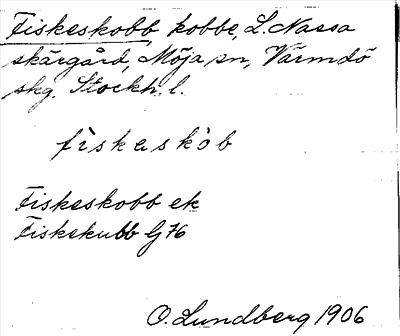 Fiskeskobb, kobbe, L. Nassa
skärgård, Möja sn, Värmdö
skg. Stockh. l.
fìskeskòb
Fiskeskobb ek
Fiskekubb Gj 76
O. Lundberg 1906